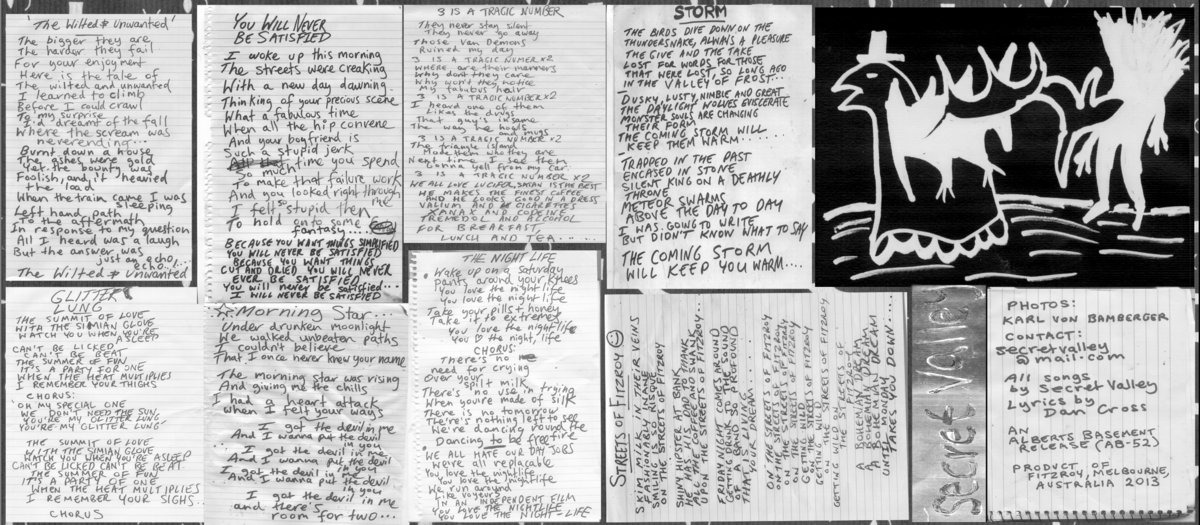 'The Wilted & Unwanted'
The bigger they are
The harder they fail
For your enjoyment
Here is the tale of
The wilted and unwanted
I learned to climb
Before I could crawl
To my surprise
I'd dreamt of the fall
Where the scream was
neverending...
Burnt down a house
The ashes were gold
Yet the bounty was
Foolish, and it heavied
the load
When the train came I was
sleeping
Left hand path
To the aftermath
In response to my question
All I heard was a laugh
But the answer was
just an echo...
echo...
The Wilted & Unwanted
YOU WILL NEVER
BE SATISFIED
I woke up this morning
The streets were creaking
With a new day dawning
Thinking of your precious scene
What a fabulous time
When all the hip convene
And your boyfriend is
Such a stupid jerk
time you spend
So much
To make that failure work
And you looked right through
me
I felt so stupid then
To hold onto some
fantasy...
BECAUSE YOU WANT THINGS SIMPLIFIED
YOU WILL NEVER BE SATISFIED
BECAUSE YOU WANT THINGS
CUT AND DRIED YOU WILL NEVER
EVER BE SATISFIED
You will never be satisfied...
I WILL NEVER BE SATISFIED
3 IS A TRAGIC NUMBER
They never stay silent
They never go away
Those Van Demons
Ruined my day
3 IS A TRAGIC NUMER x2
Where are their manners
Why don't they care
Why won't they notice
My fabulous hair
3 IS A TRAGIC NUMBER x2
I heard one of them
Likes the drugs
That guy's insane
The way he hoods
and mugs
3 IS A TRAGIC NUMBER x2
The triangle island
Made them who they are
Next time I see them
Gonna yell from my car
3 IS A TRAGIC NUMBER x2
WE ALL LOVE LUCIFER, SATAN IS THE BEST
HE MAKES THE FINEST COFFEE
AND HE LOOKS GOOD IN A DRESS
VALIUM AND CIGARETTES
XANAX AND CODEINE
TRAMEDOL AND ALCOHOL
FOR BREAKFAST,
LUNCH AND TEA.....
STORM
THE BIRDS DIVE DOWN ON THE
THUNDERSNAKE, ALWAYS A PLEASURE
THE GIVE AND THE TAKE
LOST FOR WORDS FOR THOSE
THAT WERE LOST, SO LONG AGO
IN THE VALLEY OF FROST...
DUSKY, LUSTY, NIMBLE AND GREAT
THE DAYLIGHT WOLVES EVISCERATE
MONSTER SOULS ARE CHANGING
THEIR FORM
THE COMING STORM WILL
KEEP THEM WARM....
TRAPPED IN THE PAST
ENCASED IN STONE
SILENT KING ON A DEATHLY
THRONE
METEOR SWARMS
ABOVE THE DAY TO DAY
I WAS GOING TO WRITE
BUT DIDN'T KNOW WHAT TO SAY
THE COMING STORM
WILL KEEP YOU WARM....
GLITTER
LUNG
THE SUMMIT OF LOVE
WITH THE SIMIAN GLOVE
WATCH YOU WHEN YOU'RE
ASLEEP
CAN'T BE LICKED
CAN'T BE BEAT
THE SUMMER OF FUN
IT'S A PARTY FOR ONE
WHEN THE HEAT MULTIPLIES
I REMEMBER YOUR THIGHS
CHORUS:
'OH MY SPECIAL ONE
WE DON'T NEED THE SUN,
YOU'RE MY GLITTER LUNG
YOU'RE MY GLITTER LUNG'
THE SUMMIT OF LOVE
WITH THE SIMIAN GLOVE
WATCH YOU WHEN YOU'RE ASLEEP
CAN'T BE LICKED CAN'T BE BEAT
THE SUMMER OF FUN
IT'S A PARTY OF ONE
WHEN THE HEAT MULTIPLIES
I REMEMBER YOUR SIGHS..
CHORUS
Morning Star...
Under drunken moonlight
We walked unbeaten paths
I couldn't believe
That I once never knew your name
The morning star was rising
And giving me the chills
I had a heart attack
When I felt your ways
I got the devil in me
And I wanna put the devil
in you
I got the devil in me
And I wanna put the devil
in you
I got the devil in me
And I wanna put the devil
in you
I got the devil in me
and there's
room for two...
THE NIGHT LIFE
Wake up on a Saturday
pants around your knees
You love the night life
You love the night life
Take your pills & honey
Take it to extremes
You love the night life
You ♡ the night, life
CHORUS:
There's no
need for crying
Over your
spilt milk
There's no use in trying
When you're made of silk
There is no tomorrow
There's nothing left to see
We're dancing round the
fire
Dancing to be free
WE ALL HATE OUR DAY JOBS
We're all replacable
You love the nightlife
You love the nightlife
We run around
Like voyeurs
IN AN INDEPENDENT FILM
YOU LOVE THE NIGHTLIFE
YOU LOVE THE NIGHT-LIFE
STREETS OF FITZROY
SKIM MILK IN THEIR VEINS
FASHIONABLY INSANE
SMILING AT RISQUE
ON THE STREETS OF FITZROY
SHIVY HIPSTER AT BANK
HER MOTHER'S TO THANK
ALL THE COFFEE AND SHANK
UPON THE STREETS OF FITZROY...
FRIDAY NIGHT COMES AROUND
GETTING WILD TO THE SOUND
OF A BAND SO PROFOUND
THAT'S YOUR DREAM
ON THE STREETS OF FITZROY
ON THE STREETS OF FITZROY
ON THE STREETS OF FITZROY
ON THE STREETS OF FITZROY
GETTING WILD ON THE
STREETS OF FITZROY
GETTING WILD ON THE
STREETS OF
FITZROY
A BOHEMIAN DREAM
A BOHEMIAN DREAM
A BOHEMIAN DREAM
UNTIL MONDAY
TAKES YOU DOWN...
Secret Valley
PHOTOS:
KARL VON BAMBERGER
CONTACT:
secretvalley
@mail.com
All songs
by Secret Valley
Lyrics by
Dan Cross
AN
ALBERTS BASEMENT
RELEASE (AB-52)
PRODUCT OF
FITZROY, MELBOURNE,
AUSTRALIA 2013